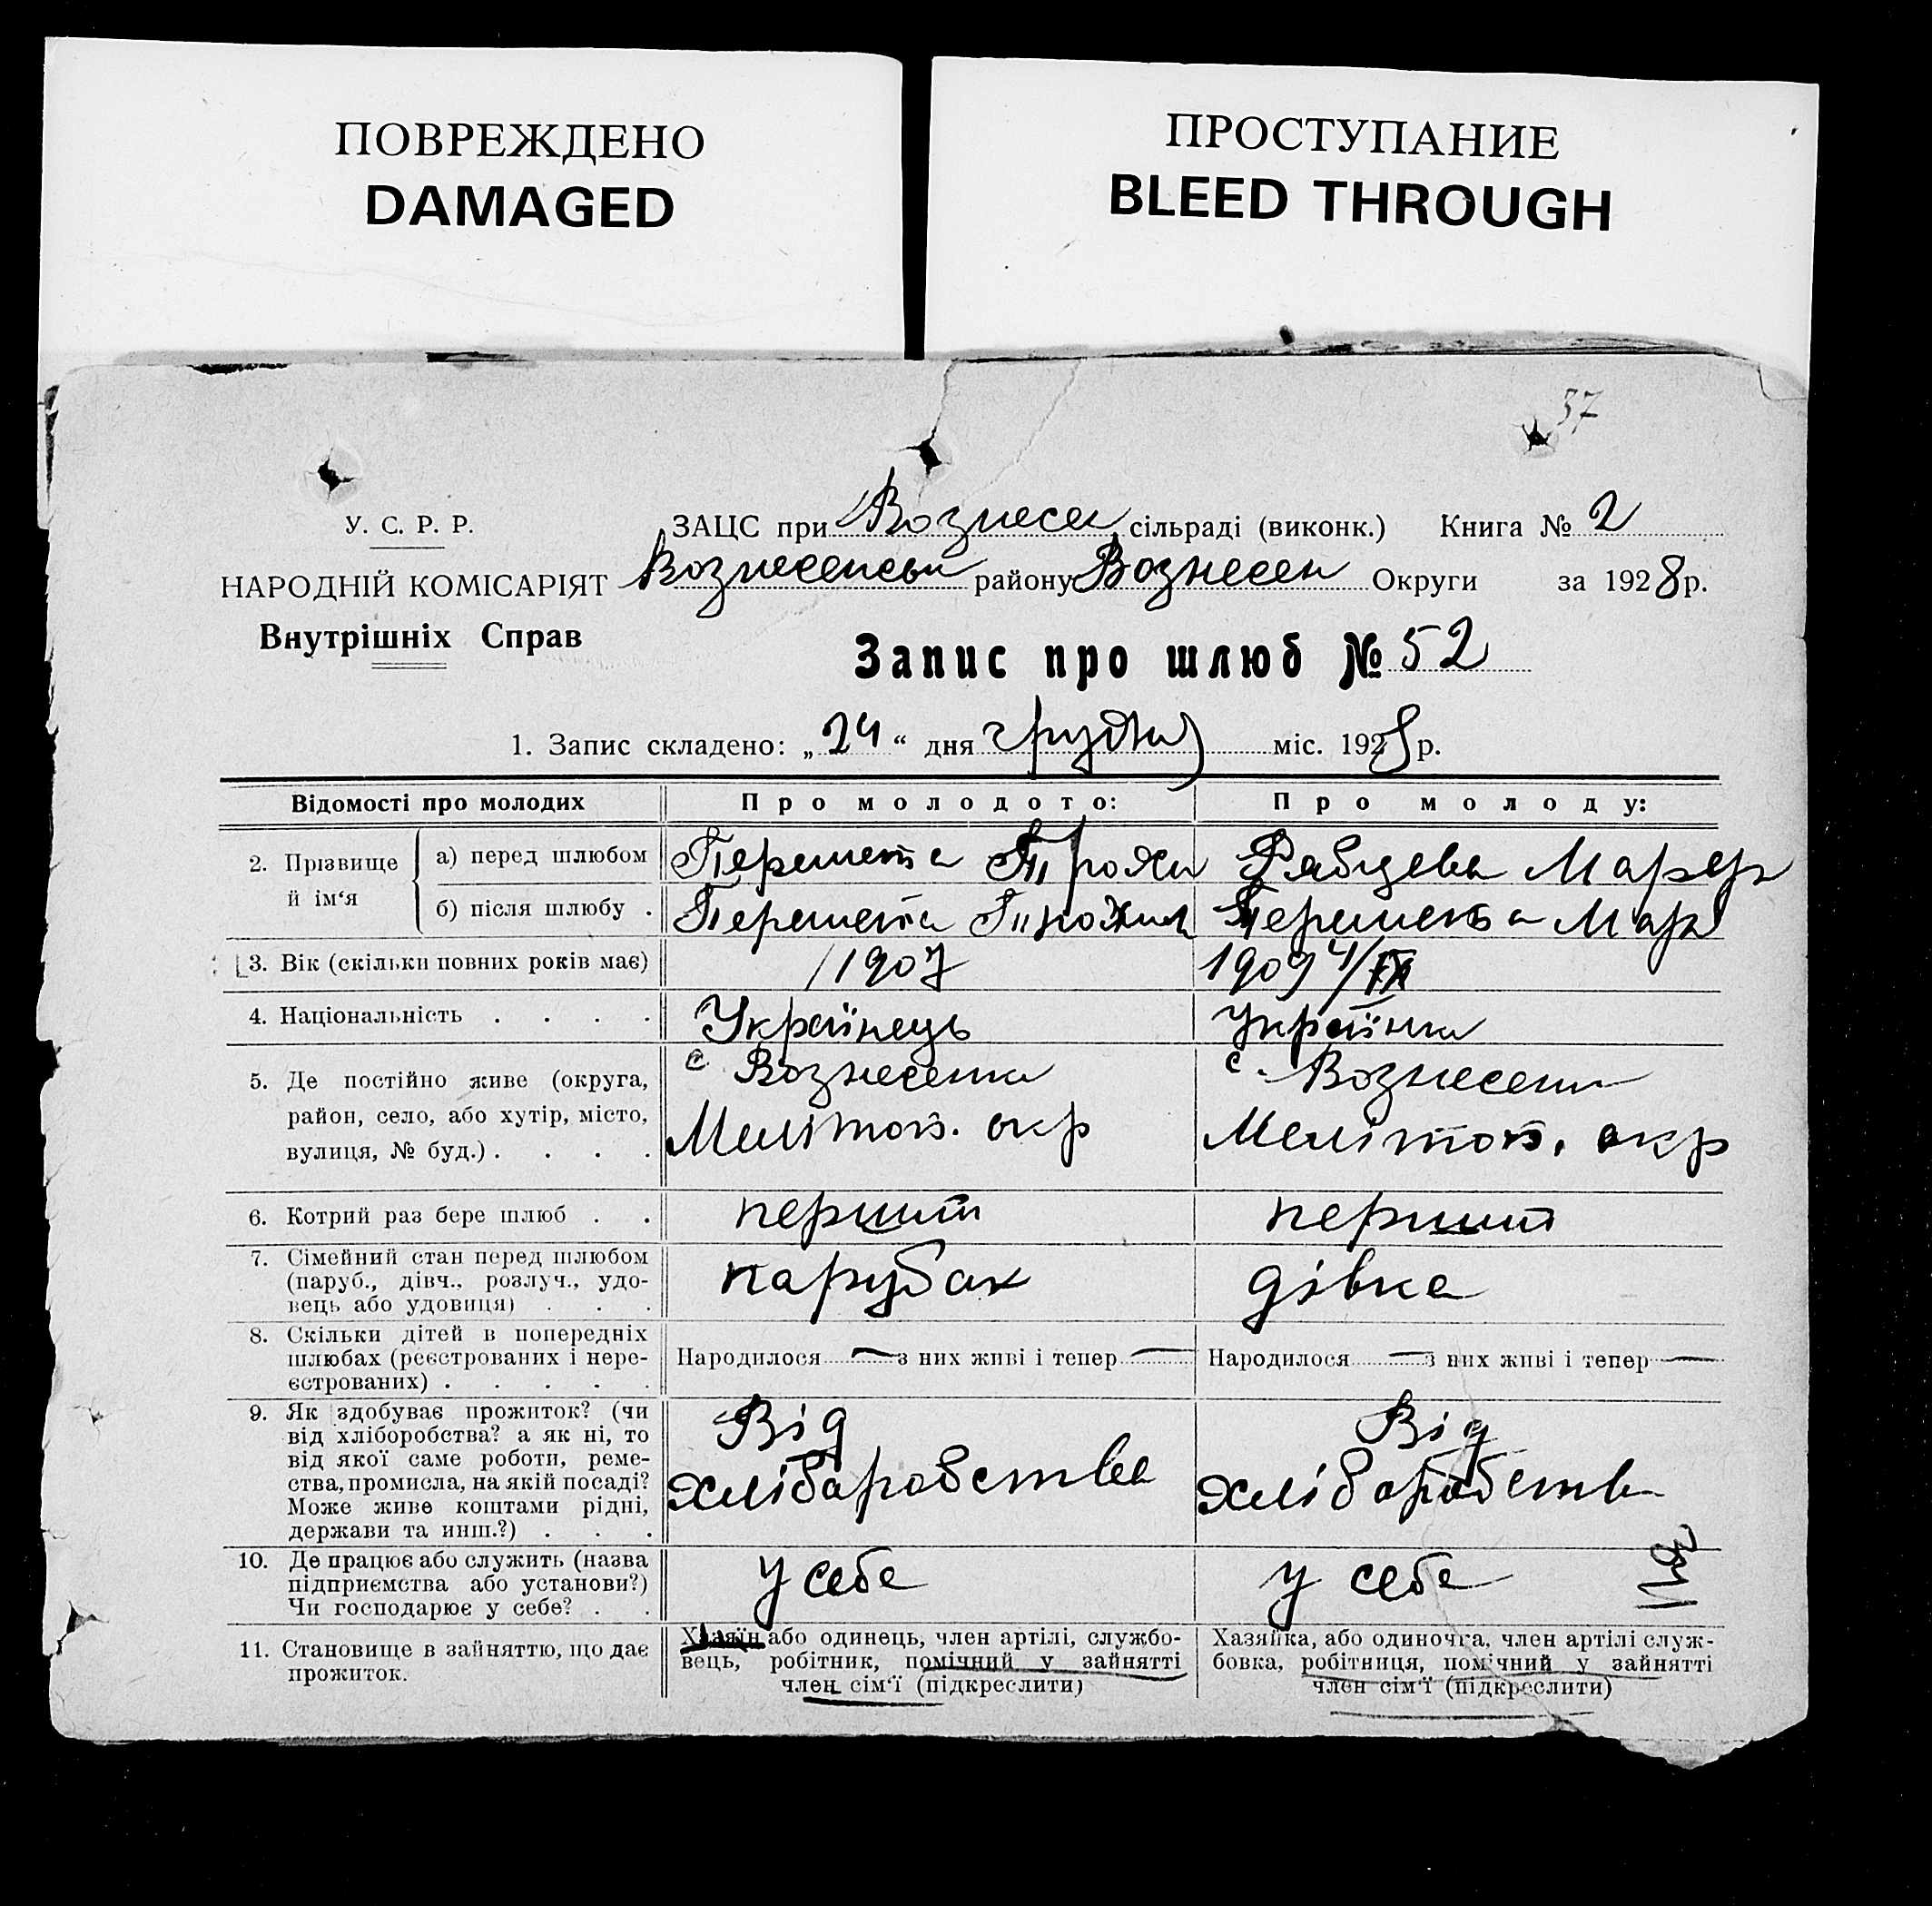 ПОВРЕЖДЕНО
DAMAGED
ПРОСТУПАНИЕ
BLEED THROUGH
37
У. С. Р. Р.
НАРОДНІЙ КОМІСАРІЯТ
Внутрішніх Справ
ЗАЦС при Вознесен сільраді (виконк.) Книга № 2
району Вознесен Округи за 1928 р.
Запис про шлюб № 52
1. Запис складено: „24“ дня грудня міс. 1928 р.
Відомості про молодих
Про молодого:
Про молоду:
2. Прізвище й ім‘я
а) перед шлюбом
Перемета
Рябцева
б) після шлюбу .
Перемета
Перемета
3. Вік (скільки повних років має)
1907
1909 4/IX
4. Національність . . . .
Українець
Українка
5. Де постійно живе (округа,
район, село, або хутір, місто,
вулиця, № буд.) . . . .
с. Вознесенка
Мелітоп. окр
с. Вознесенка
Мелітоп. окр
6. Котрий раз бере шлюб . .
перший
перший
7. Сімейний стан перед шлюбом
(паруб., дівч., розлуч., удо-
вець або удовиця) . . .
парубак
дівка
8. Скільки дітей в попередніх
шлюбах (реєстрованих і нере-
єстрованих) . . . . .
Народилося — з них живі і тепер —
Народилося — з них живі і тепер —
9. Як здобуває прожиток? (чи
від хліборобства? а як ні, то
від якої саме роботи, реме-
ства, промисла, на якій посаді?
Може живе коштами рідні,
держави та инш.?) . . .
Від
хлібаробства
Від
хліборобства
10. Де працює або служить (назва
підприємства або установи?)
Чи господарює у себе? . .
у себе
у себе
11. Становище в зайняттю, що дає
прожиток.
Хазяїн або одинець, член артілі, службо-
вець, робітник, помічний у зайнятті
член сім‘ї (підкреслити)
Хазяйка, або одиночка, член артілі служ-
бовка, робітниця, помічний у зайнятті
член сім‘ї (підкреслити)